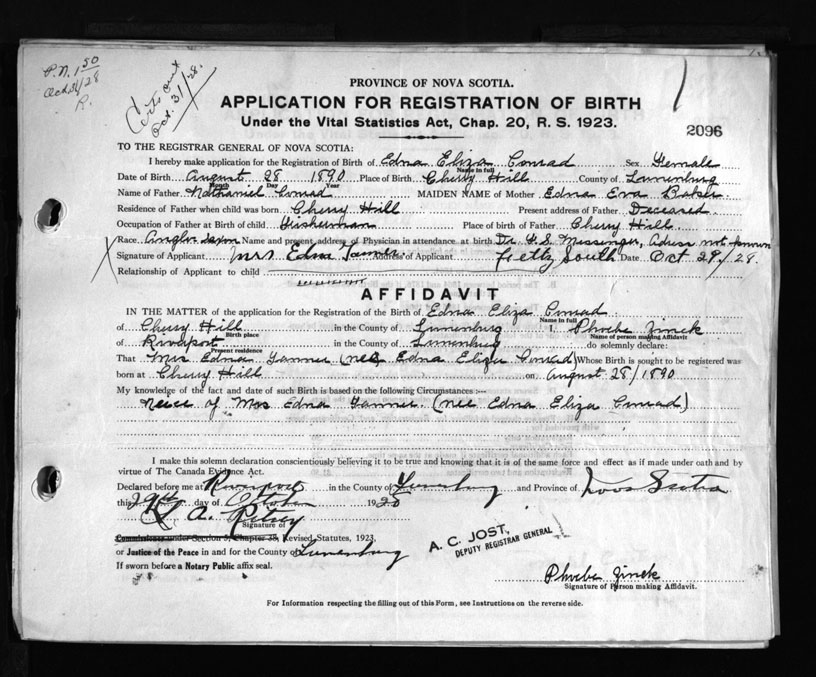 P.N. 1 50
Oct 31/28
R.
Certs out
Oct. 31/28.
PROVINCE OF NOVA SCOTIA.
APPLICATION FOR REGISTRATION OF BIRTH
Under the Vital Statistics Act, Chap. 20, R. S. 1923.
2096
TO THE REGISTRAR GENERAL OF NOVA SCOTIA:
I hereby make application for the Registration of Birth of Edna Eliza Conrad Sex Female
Name in full
Date of Birth August 28 1890 Place of Birth Cherry Hill County of Lunenburg
Month Day Year
Name of Father Nathaniel Conrad MAIDEN NAME of Mother Edna Eva Baker
Residence of Father when child was born Cherry Hill Present address of Father Deceased
Occupation of Father at Birth of child Fisherman Place of birth of Father Cherry Hill
Race Anglo Saxon Name and present address of Physician in attendance at birth Dr. F. S. Messinger, Adress not known
Signature of Applicant Mrs Edna Address of Applicant Feltz South Date Oct 29/28.
Relationship of Applicant to child
AFFIDAVIT
IN THE MATTER of the application for the Registration of the Birth of Edna Eliza Conrad
Name in full
of Cherry Hill in the County of Lunenburg I, Phoebe Zinck
Birth place Name of person making Affidavit
of Riverport in the County of Lunenburg do solemnly declare:
Present residence
That Mrs Edna (nee Edna Eliza Conrad) Whose Birth is sought to be registered was
born at Cherry Hill on August 28/1890
My knowledge of the fact and date of such Birth is based on the following Circumstances :—
Neice of Mrs Edna (nee Edna Eliza Conrad)
I make this solemn declaration conscientiously believing it to be true and knowing that it is of the same force and effect as if made under oath and by
virtue of The Canada Evidence Act.
Declared before me at Riverport in the County of Lunenburg and Province of Nova Scotia
this 29th day of October 1928
Signature of
Commissioner under Section 3, Chapter 38, Revised Statutes, 1923,
or Justice of the Peace in and for the County of Lunenburg
If sworn before a Notary Public affix seal.
A. C. JOST,
DEPUTY REGISTRAR GENERAL
Phoebe Zinck
Signature of Person making Affidavit.
For Information respecting the filling out of this Form, see Instructions on the reverse side.